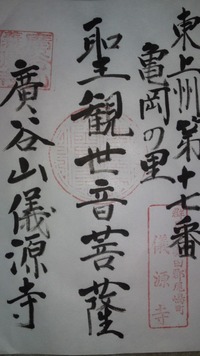 東上州第十七番
亀岡の里
聖観世音菩薩
廣谷山儀源寺
儀源寺